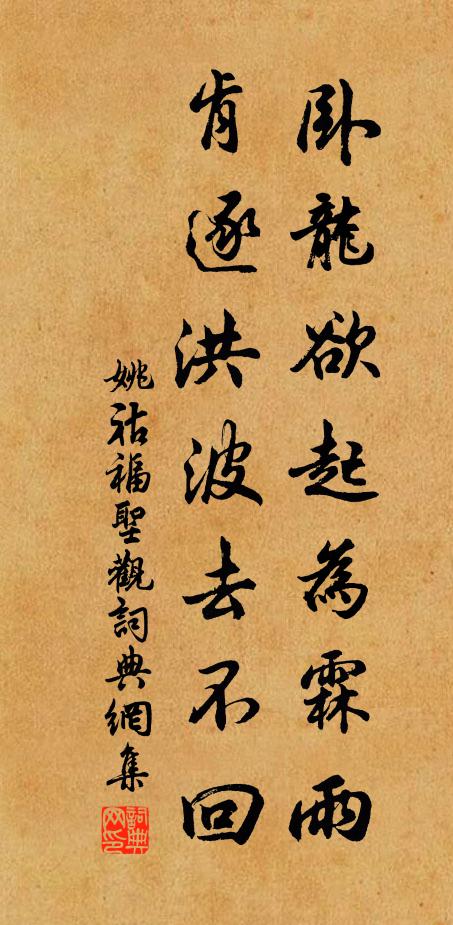 卧龍欲起為霖雨
肯逐洪波去不回
姚祜福聖觀詞典網集
詞典網印